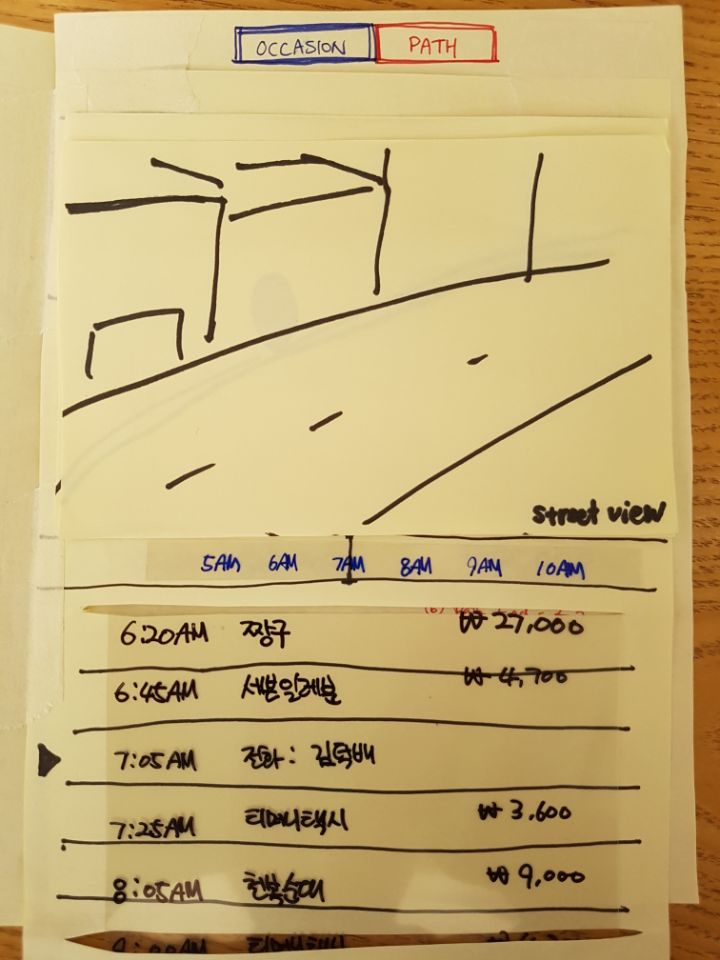 OCCASION PATH
street view
5AM 6AM 7AM 8AM 9AM 10AM
6:20AM 짱구 ₩ 27,000
6:45AM 세븐일레븐 ₩ 4,700
7:05AM 전화: 김덕배
7:25AM 티머니택시 ₩ 3,600
8:05AM 전북순대 ₩ 9,000
티머니택시